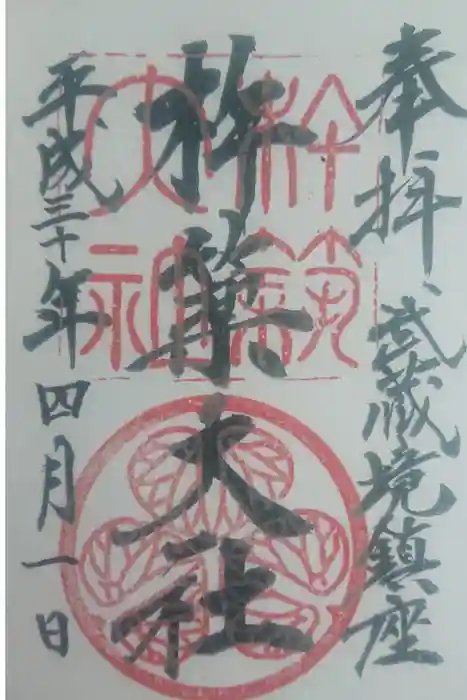 奉拝、武蔵境鎮座
杵築大社
杵築大社
平成三十年四月一日